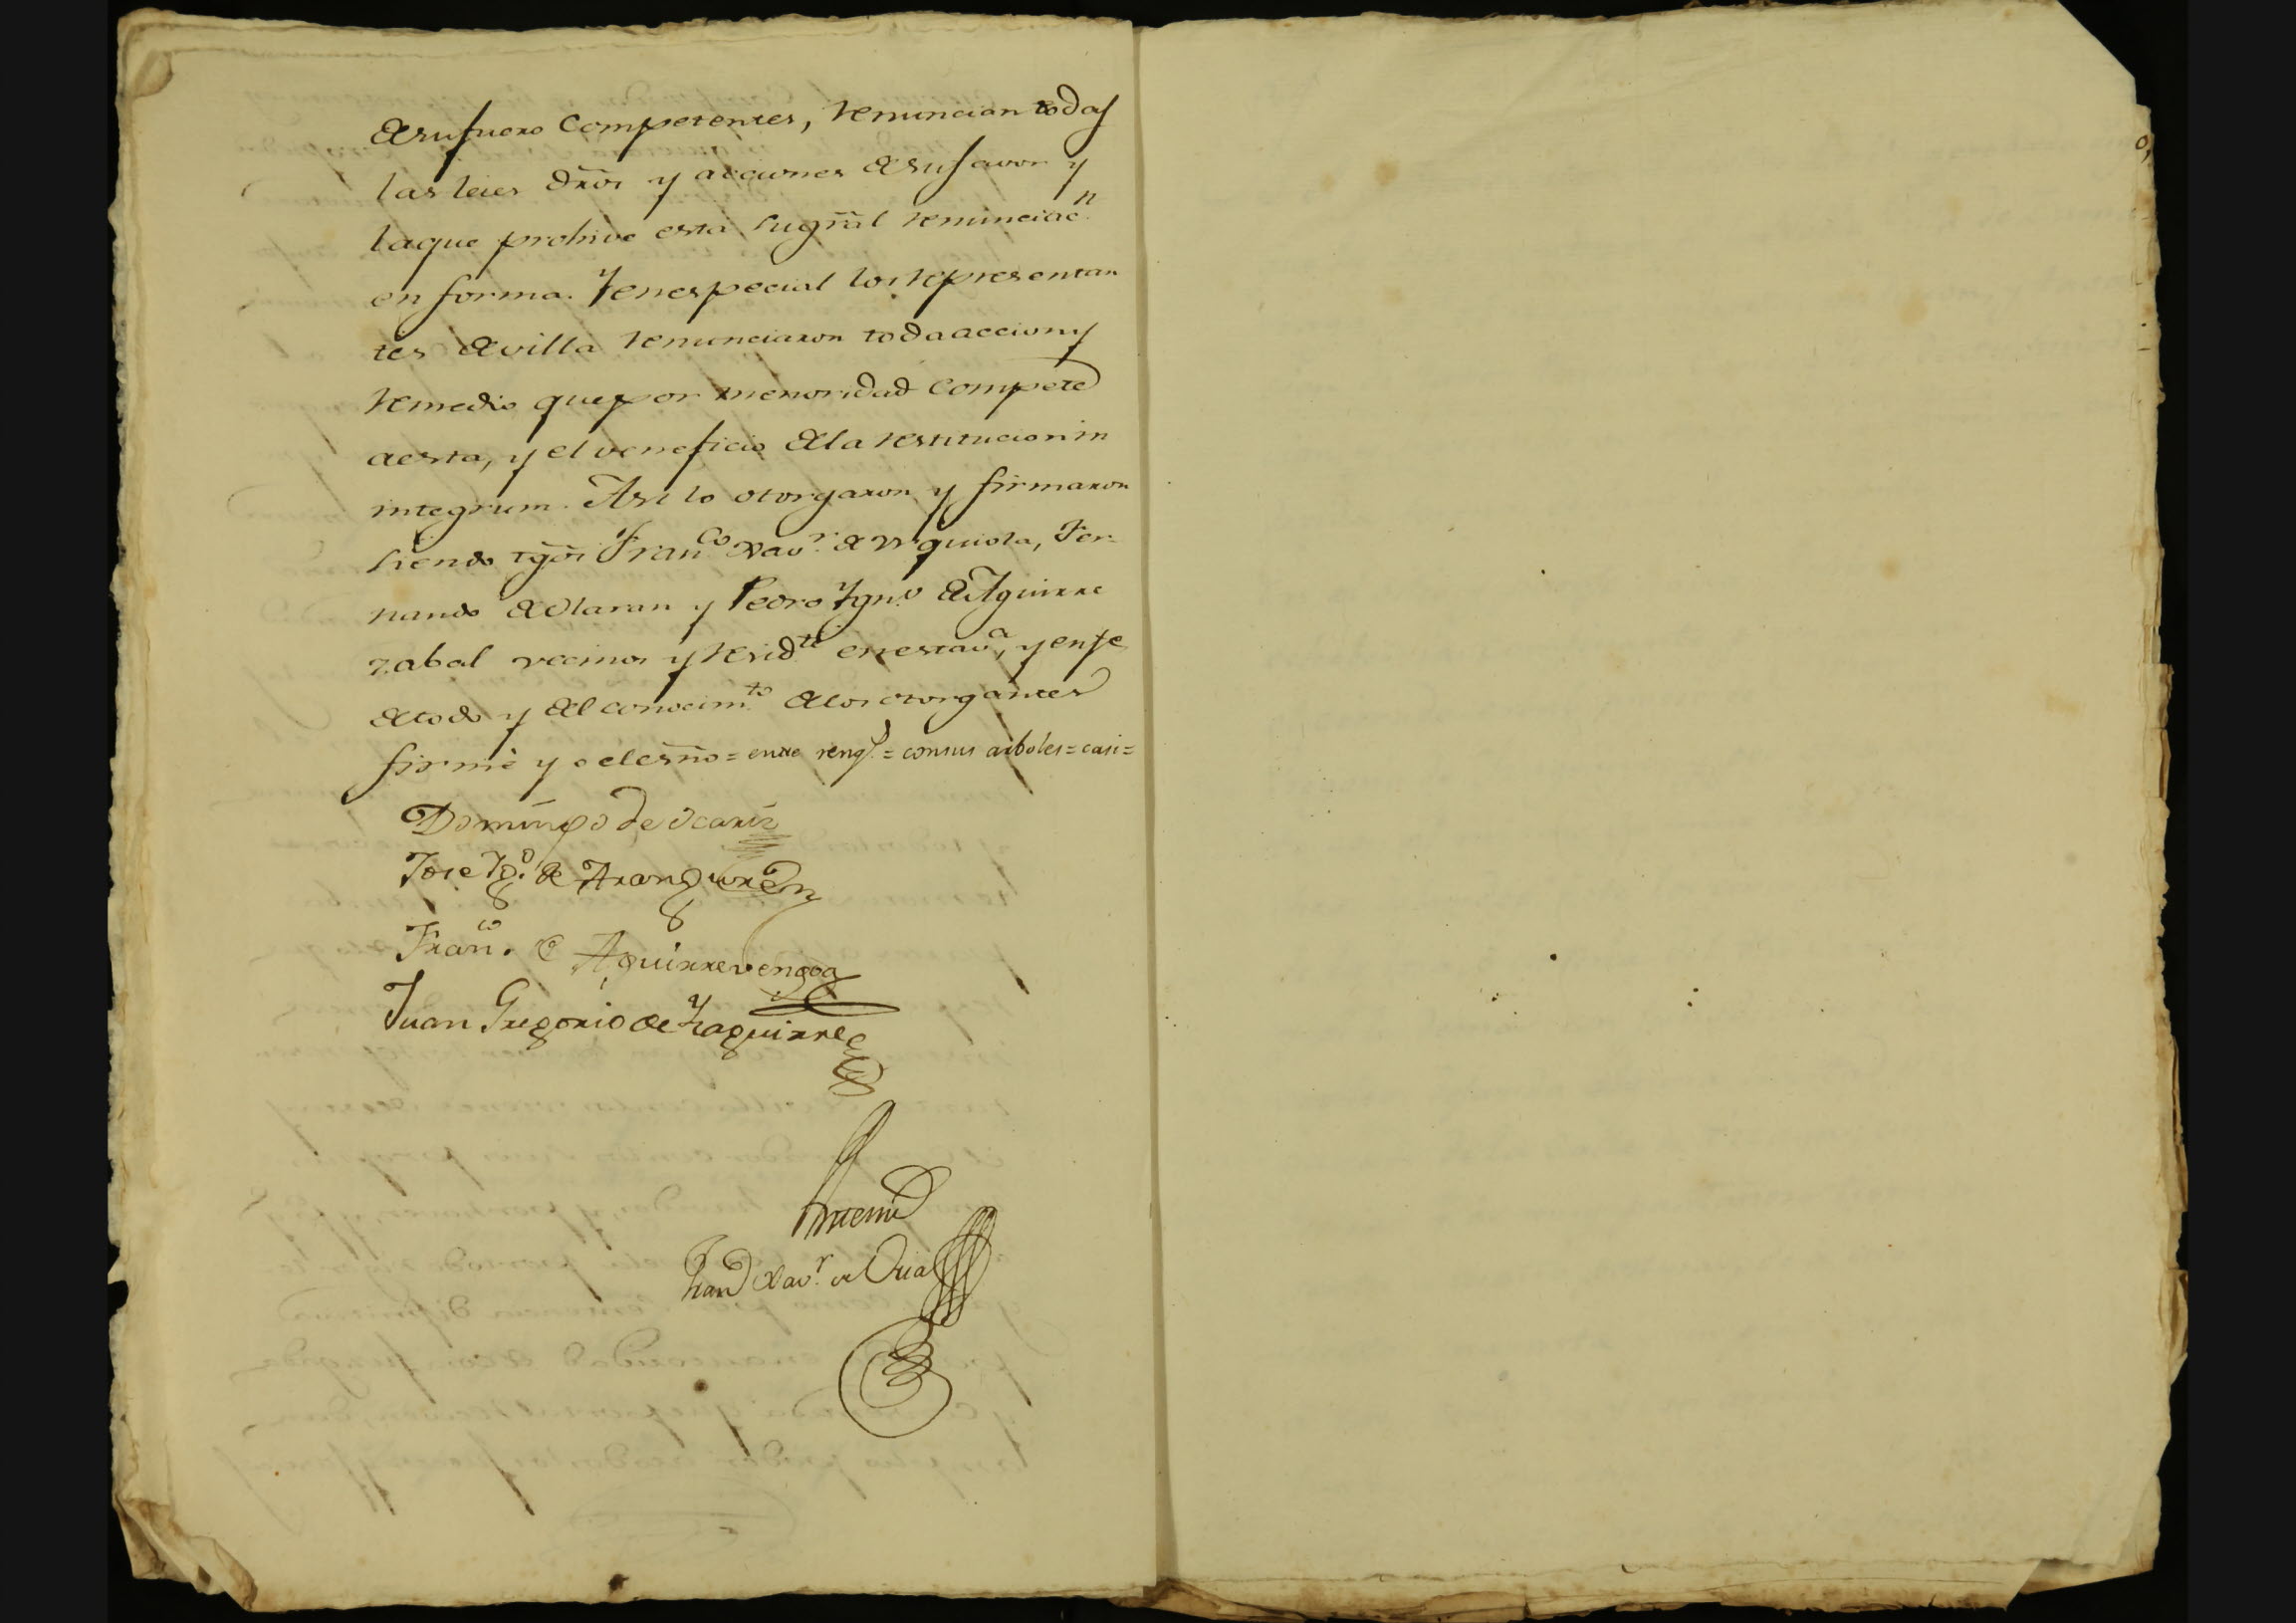 de su fuero competentes, renuncian todas
las leies dr̃os y acciones de su favor y
la que prohive esta su gr̃al renunciac.n
en forma. Y en especial los representan
tes de villa renunciaron toda accion y
remedio que por menoridad compete
a esta, y el veneficio de la restitucion in
integrum. Asi lo otorgaron y firmaron
siendo tg̃os Fran.co Xav.r de Vrquiola, Fer-
nando de Olaran y Pedro Ygn.o de Aguirre
zabal vecinos y resid.tes en esta v.a, y en fe
de todo y del conocim.to de los otorgantes
firmé yo el esn̄o = entre reng.s = con sus arboles = casi =
Domingo de Ocariz
Jose Yg.o de Aranguren
Fran.co de Aguirrevengoa
Juan Gregorio de Yzaguirre
Ante mi
Fran.co Xav.r de Oria